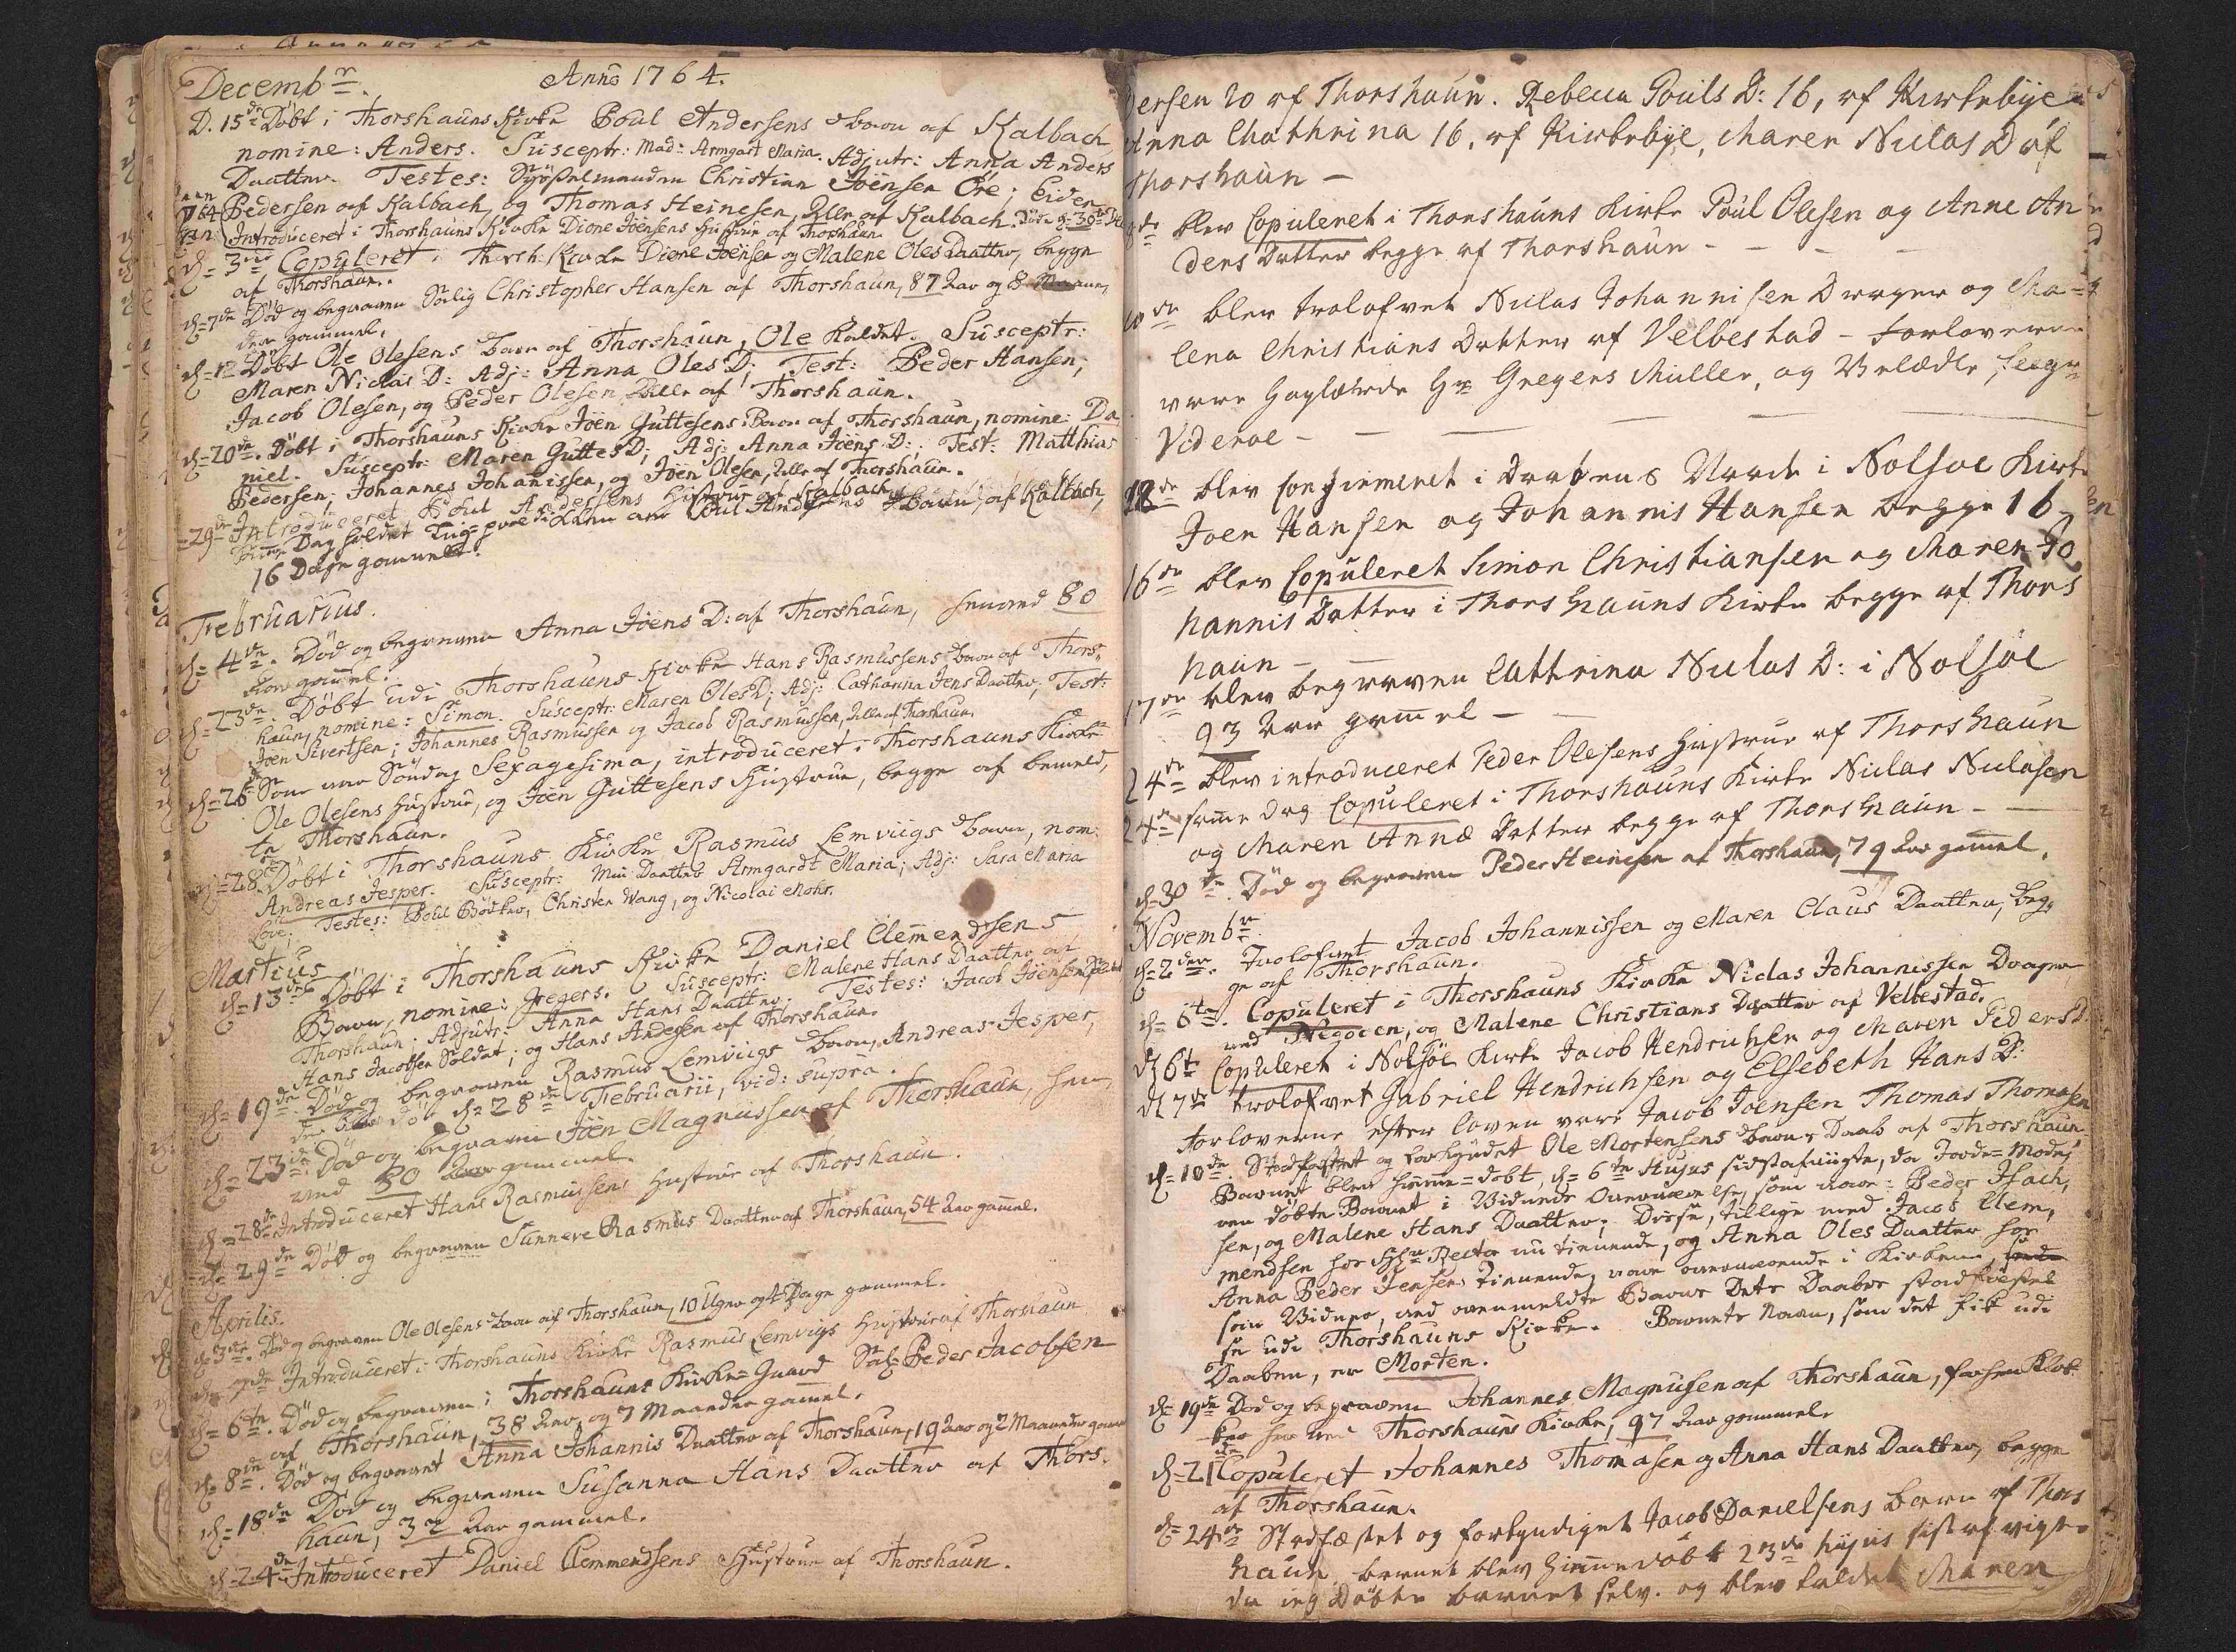 Decembr. Anno 1764.
D. 15de Döbt i Thorshauns Kirke Poul Andersens Barn af Kalbach
nomine: Anders. Susceptr: Mad: Armgart Maria. Adjutr: Anna Anders
Daatter. Testes: Sysselmanden Christian Joensen Öre; Eiden
Pedersen af Kalbach, og Thomas Heinesen, Alle af Kalbach.
Introduceret i Thorshauns Kirke Dione Joensens Hustrue af Thorshaun
d= 3die Copuleret i Thorsh: Kirke Dione Joensen og Malene Oles Daatter, begge
af Thorshaun.
d=7de Död og begraven Salig Christopher Hansen af Thorshaun, 87 Aar og 8 Maane,
der gammel.
d=12 Döbt Ole Olesens Barn af Thorshaun, Ole kaldet. Susceptr:
Maren Niclas D: Adj: Anna Oles D; Test: Peder Hansen;
Jacob Olesen, og Peder Olesen Alle af Thorshaun.
d=20de. Döbt i Thorshauns Kirke Joen Guttesens Barn af Thorshaun, nomine: Da
niel. Susceptr: Maren Guttes D; Adj: Anna Joens D:; Test: Matthias
Pedersen; Johannes Johanissen, og Joen Olesen, Alle af Thorshaun.
=29de Introduceret Poul Andersens Hustrue af Kalbach
Dag holdet Liig= Poul Andersens Barn, af Kalbach,
16 Dage gammelt.
Februarius.
d= 4de. Död og begraven Anna Joens D: af Thorshaun, henved 80
Aar gammel.
d=23de. Döbt udi Thorshauns Kirke Hans Rasmussens Barn af Thors,
haun, nomine: Simon. Susceptr: Maren Oles D; Adj: Catharina Jens Daatter; Test:
Joen Sivertsen; Johannes Rasmussen og Jacob Rasmussen, Alle af Thorshaun.
d=26 Som var Söndag Sexagesima, introduceret i Thorshauns Kirke
Ole Olesens Hustrue, og Joen Guttesens Hustrue, begge af bemeld,
te Thorshaun.
d=28de Döbt i Thorshauns Kirke Rasmus Lemviigs Barn, nom:
Andreas Jesper. Susceptr: Min Daatter Armgardt Maria; Adj: Sara Maria
Love; Testes: Poul Bödker, Christen Wang, og Nicolai Mohr.
Martius
d=13de Döbt i Thorshauns Kirke Daniel Clemendsens
Barn, nomine: Gregers. Susceptr: Malene Hans Daatter af
Thorshaun; Adjutr: Anna Hans Daatter. Testes: Jacob Joensen
Hans Jacobsen Soldat; og Hans Andersen af Thorshaun.
d=19de. Död og begraven Rasmus Lemviigs Barn, Andreas Jesper,
der blev döbt d=28de Februarii, vid: supra.
d=23de Död og begraven Joen Magnussen af Thorshaun, hen,
ved 80 Aar gammel.
d=28de Introduceret Hans Rasmussens Hustrue af Thorshaun.
d=29de Död og begraven Sunneve Rasmus Daatter af Thorshaun, 54 Aar gamel.
Aprilis.
d=3die. Död og begraven Ole Olesens Barn af Thorshaun, 10 Uger og 4 Dage gammel.
Introduceret i Thorshauns Kirke Rasmus Lemvigs Hustrue af Thorshaun
d= 6te. Död og begraven i Thorshauns Kirke=Gaard Sal= Peder Jacobsen
af Thorshaun, 38 Aar, og 7 Maaneder gamel.
d= 8de. Död og begravet Anna Johannis Daatter af Thorshaun, 19 Aar og 2 Maaneder gamel
d= 18de Död og begraven Susanna Hans Daatter af Thors.
haun, 32 Aar gammel.
d=24de Introduceret Daniel Clemmendsens Hustrue af Thorshaun.
dersen 20 af Thorshaun. Rebecca Pouls D: 16, af Kirkebye
Anna Chathrina 16. af Kirkebye, Maren Niclas D af
Thorshaun –
de blev Copuleret i Thorshauns Kirke Poul Olesen og Anne An
ders Datter begge af Thorshaun – – –
10de blev trolofvet Niclas Johannisen Drager og Ma=
lena Christians Datter af Velbestad – Forloverne
vare Hoylærde Hr Gregers Muller, og Velædle
Videroe –
12de blev confirmeret i Nolsoe Kirke
Joen Hansen og Johannis Hansen begge 16
16de blev Copuleret Simon Christiansen og Maren Jo
hannis Datter i Thorshauns Kirke begge af Thors
haun –
17de blev begraven Cathrina Niclas D: i Nolsöe
93 Aar gamel –
24de blev introduceret Peder Olesens Hustrue af Thorshaun
24de samme Dag Copuleret i Thorshauns Kirke Niclas Niclasen
og Maren Annæ Datter begge af Thorshaun –
d=30te. Död og begraven Peder Heinesen af Thorshaun, 79 Aar gamel.
Novembr.
d=2den. Trolofvet Jacob Johannissen og Maren Claus Daatter, beg,
ge af Thorshaun.
d= 6te. Copuleret i Thorshauns Kirke Niclas Johannissen Drager
ved Negocen, og Malene Christians Daatter af Velbestad.
d 6te Copuleret i Nolsöe Kirke Jacob Hendrichsen og Maren Peders D.
d 7de trolofvet Gabriel Hendrichsen og Elsebeth Hans D:
Forloverne efter loven vare Jacob Joensen Thomas Thomasen
d=10de. Stadfæstet og forkyndet Ole Mortensens Barns Daab af Thorshaun
Barnet blev hiemme=döbt, d= 6te Hujus sidstafvigte, da Jorde=Mode,
ren döbte Barnet i Vidners Overværelse, som vare: Peder Isach,
sen, og Malene Hans Daatter; Disse, tillige med Jacob Clem,
mendsen hos Hr Rector nu tienende, og Anna Oles Daatter hos
Anna Peder Jensens tienende, vare overværende i Kirken,
som Vidner, ved ovenmeldte Barns Dets Daabes Stadfæstel
se udi Thorshauns Kirke. Barnets Navn, som det fik udi
Daaben, er Morten.
d= 19de Död og begraven Johannes Magnusen af Thorshaun,
Thorshauns Kirke, 97 Aar gammel.
d=21de Copuleret Johannes Thomasen og Anna Hans Daatter, begge
af Thorshaun.
d=24de Stadfæstet og forkyndiget Jacob Danielsens barn af Thors
haun, barnet blev hiemmedöbt 23de hujus sist afvigte
da ieg Döbte barnet selv. og blev kaldet Maren